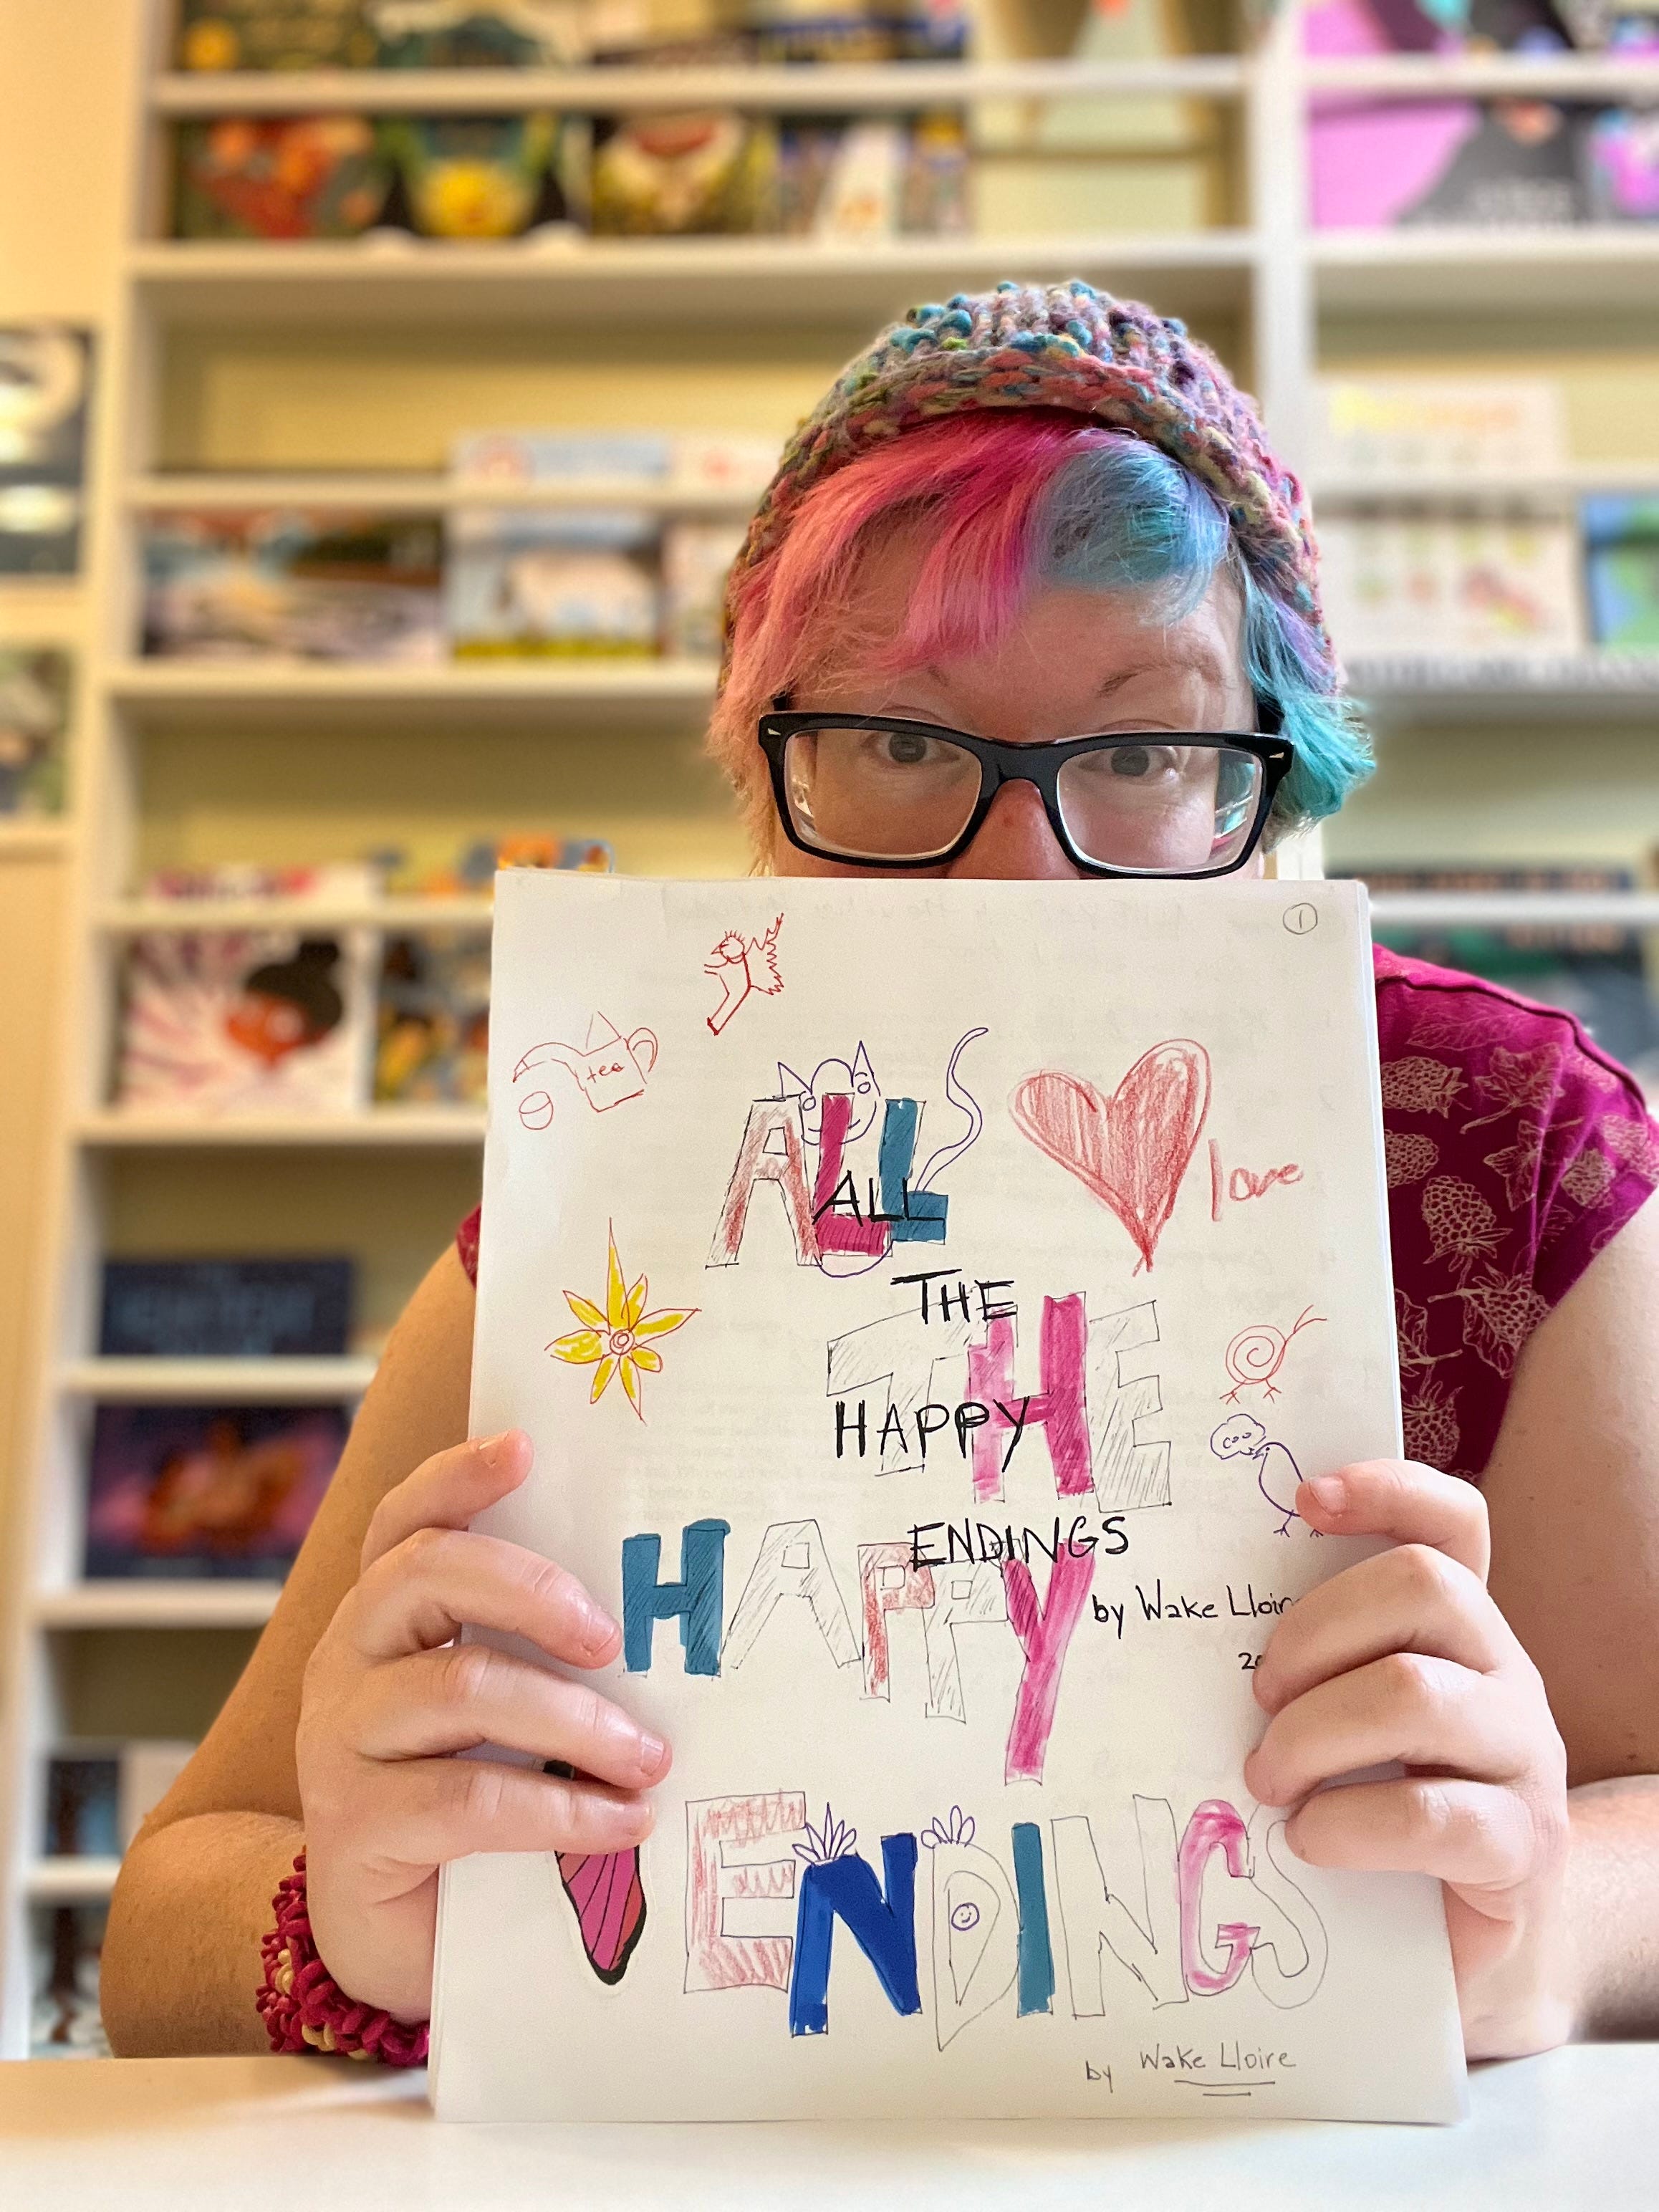 1
tea
ALL
love
ALL
THE
THE
HAPPY
coo
ENDINGS
HAPPY
by Wake Lloir
ENDINGS
by Wake Lloire